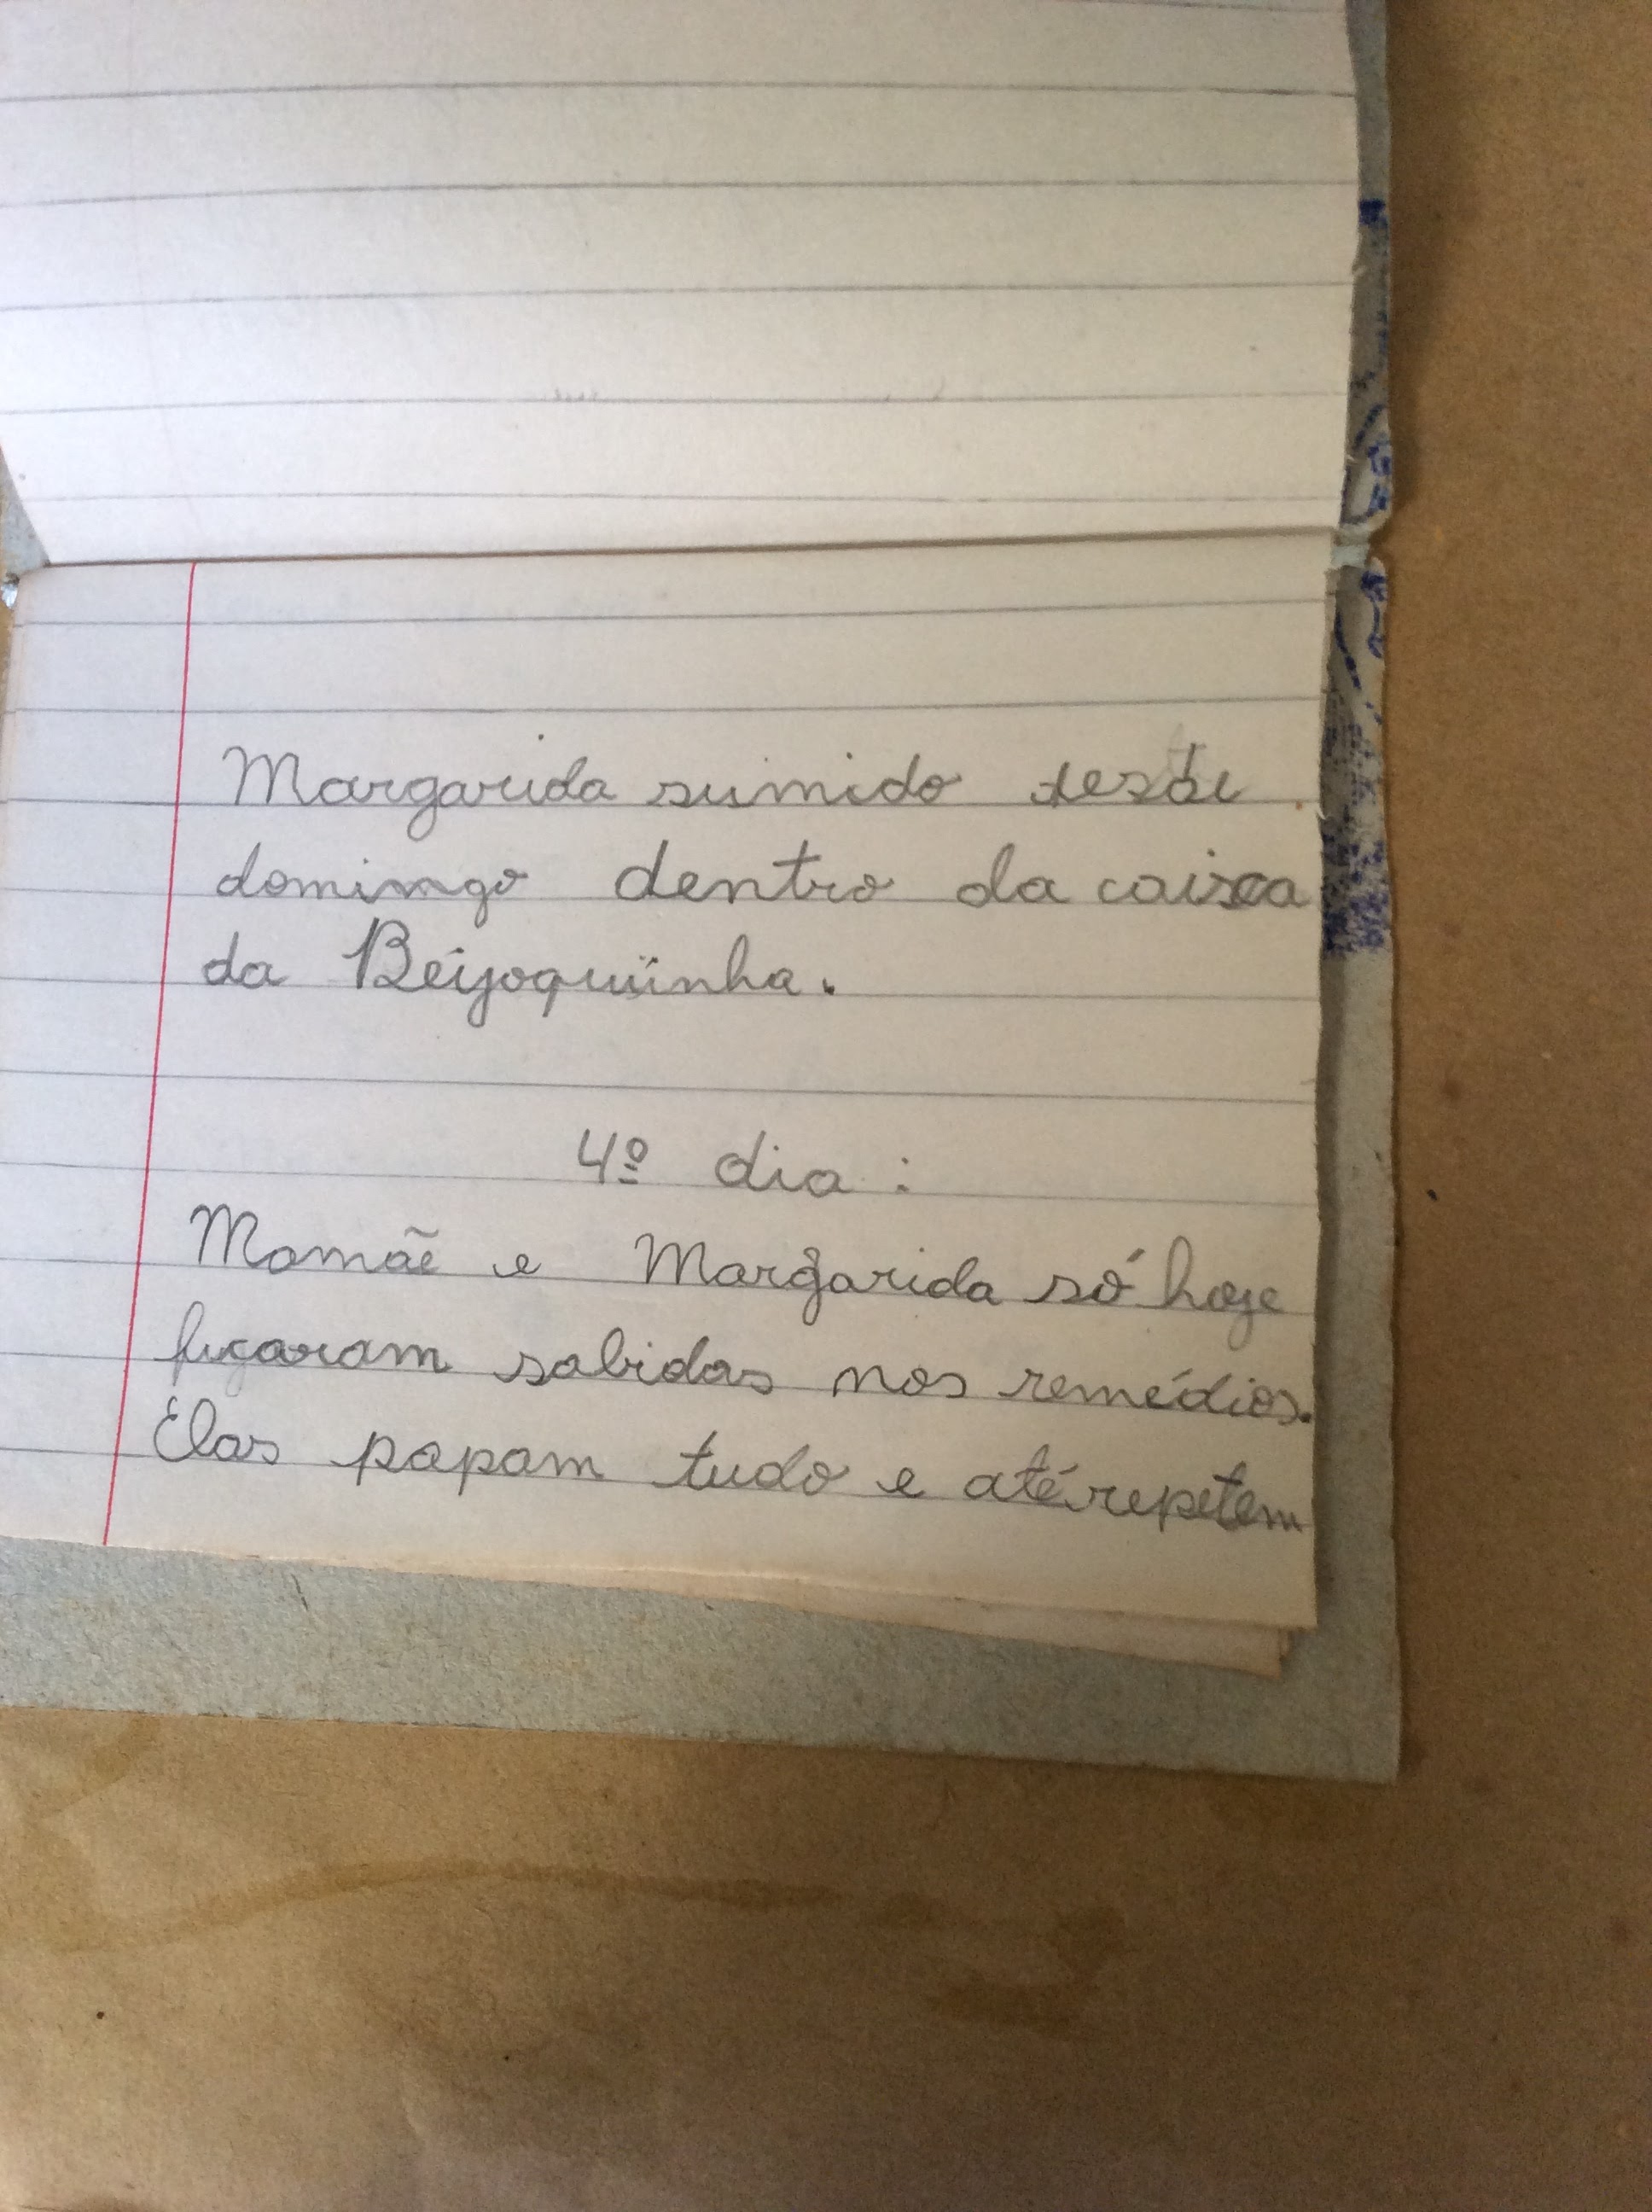 Margarida sumido desde
domingo dentro da caixa
da Beijoquinha.
4º dia :
Mamãe e Margarida só hoje
ficaram sabidas nos remédios.
Elas papam tudo e até repetem